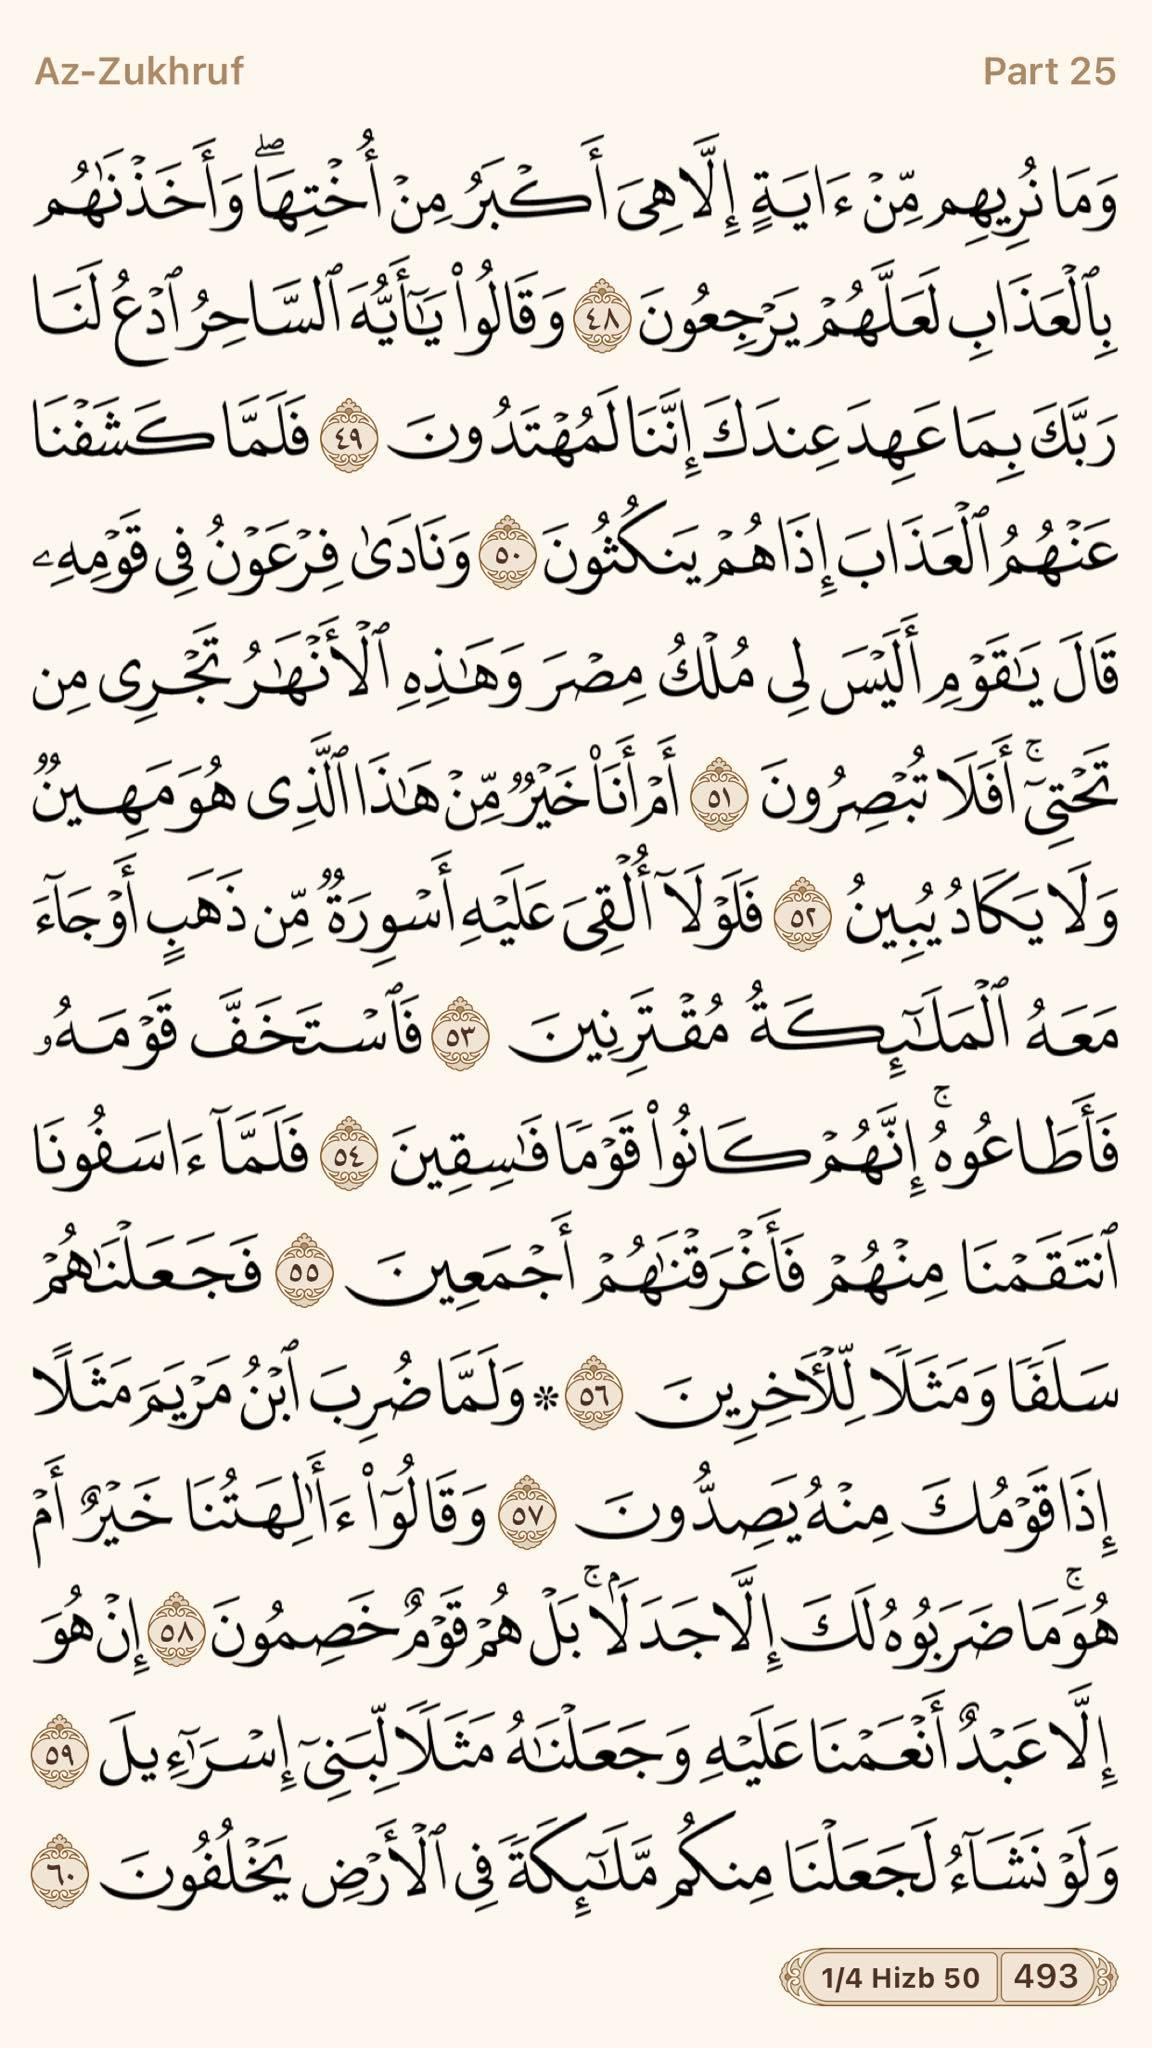 Az-Zukhruf Part 25
وَمَا نُرِيهِم مِّنْ ءَايَةٍ إِلَّا هِىَ أَكْبَرُ مِنْ أُخْتِهَا ۖ وَأَخَذْنَٰهُم
بِٱلْعَذَابِ لَعَلَّهُمْ يَرْجِعُونَ ٤٨ وَقَالُوا۟ يَٰٓأَيُّهَ ٱلسَّاحِرُ ٱدْعُ لَنَا
رَبَّكَ بِمَا عَهِدَ عِندَكَ إِنَّنَا لَمُهْتَدُونَ ٤٩ فَلَمَّا كَشَفْنَا
عَنْهُمُ ٱلْعَذَابَ إِذَا هُمْ يَنكُثُونَ ٥٠ وَنَادَىٰ فِرْعَوْنُ فِى قَوْمِهِۦ
قَالَ يَٰقَوْمِ أَلَيْسَ لِى مُلْكُ مِصْرَ وَهَٰذِهِ ٱلْأَنْهَٰرُ تَجْرِى مِن
تَحْتِىٓ ۚ أَفَلَا تُبْصِرُونَ ٥١ أَمْ أَنَا۠ خَيْرٌ مِّنْ هَٰذَا ٱلَّذِى هُوَ مَهِينٌ
وَلَا يَكَادُ يُبِينُ ٥٢ فَلَوْلَآ أُلْقِىَ عَلَيْهِ أَسْوِرَةٌ مِّن ذَهَبٍ أَوْ جَآءَ
مَعَهُ ٱلْمَلَٰٓئِكَةُ مُقْتَرِنِينَ ٥٣ فَٱسْتَخَفَّ قَوْمَهُۥ
فَأَطَاعُوهُ ۚ إِنَّهُمْ كَانُوا۟ قَوْمًا فَٰسِقِينَ ٥٤ فَلَمَّآ ءَاسَفُونَا
ٱنتَقَمْنَا مِنْهُمْ فَأَغْرَقْنَٰهُمْ أَجْمَعِينَ ٥٥ فَجَعَلْنَٰهُمْ
سَلَفًا وَمَثَلًا لِّلْـَٔاخِرِينَ ٥٦ ۞ وَلَمَّا ضُرِبَ ٱبْنُ مَرْيَمَ مَثَلًا
إِذَا قَوْمُكَ مِنْهُ يَصِدُّونَ ٥٧ وَقَالُوٓا۟ ءَأَٰلِهَتُنَا خَيْرٌ أَمْ
هُوَ ۚ مَا ضَرَبُوهُ لَكَ إِلَّا جَدَلًۢا ۚ بَلْ هُمْ قَوْمٌ خَصِمُونَ ٥٨ إِنْ هُوَ
إِلَّا عَبْدٌ أَنْعَمْنَا عَلَيْهِ وَجَعَلْنَٰهُ مَثَلًا لِّبَنِىٓ إِسْرَٰٓءِيلَ ٥٩
وَلَوْ نَشَآءُ لَجَعَلْنَا مِنكُم مَّلَٰٓئِكَةً فِى ٱلْأَرْضِ يَخْلُفُونَ ٦٠
1/4 Hizb 50 493